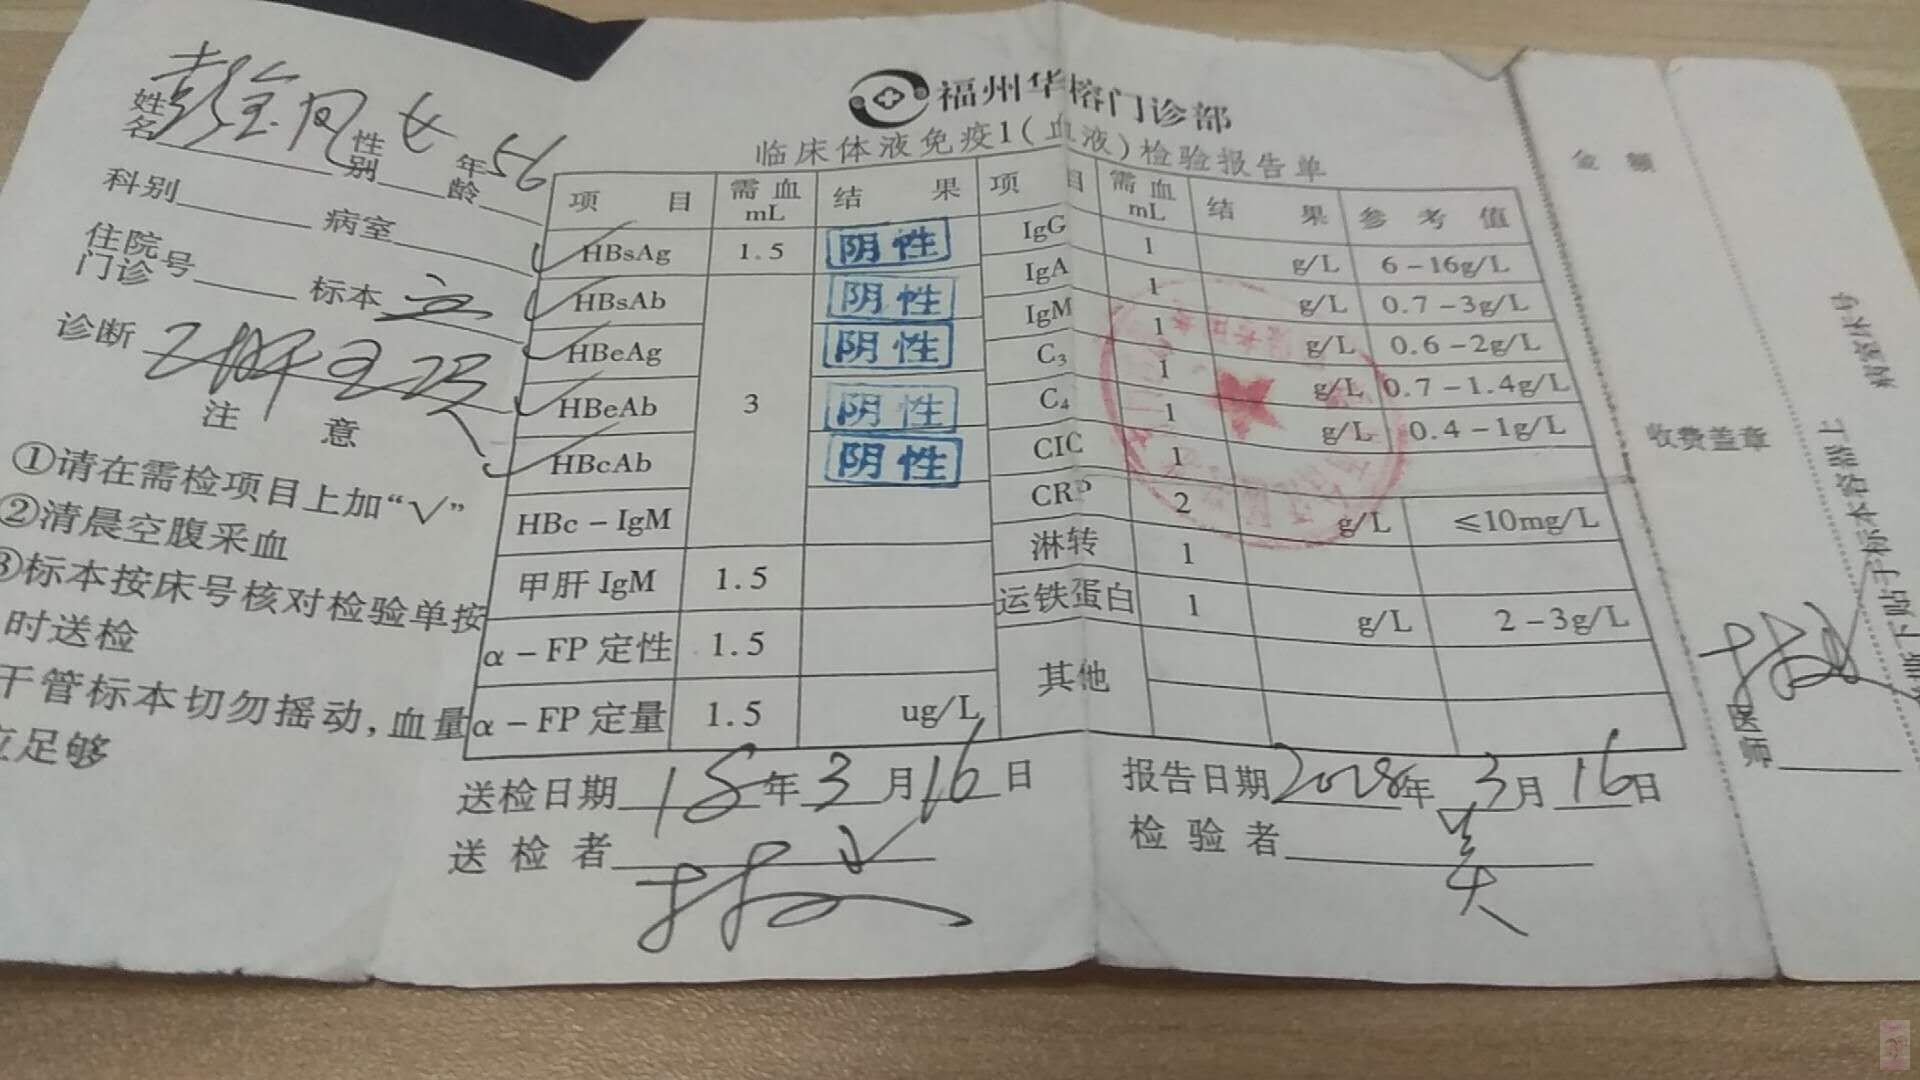 福州华榕门诊部
临床体液免疫1(血液)检验报告单
姓名 性别 女 年龄 56
科别 病室
住院号 门诊 标本
诊断 乙肝
注意
①请在需检项目上加“√”
②清晨空腹采血
③标本按床号核对检验单按
时送检
干管标本切勿摇动,血量
应足够
项目 需血mL 结果 项目 需血mL 结果 参考值
HBsAg 1.5 阴性 IgG 1 g/L 6-16g/L
HBsAb 3 阴性 IgA 1 g/L 0.7-3g/L
HBeAg 阴性 IgM 1 g/L 0.6-2g/L
HBeAb 阴性 C₃ 1 g/L 0.7-1.4g/L
HBcAb 阴性 C₄ 1 g/L 0.4-1g/L
HBc-IgM CIC 1
甲肝IgM 1.5 CRP 2 g/L ≤10mg/L
α-FP定性 1.5 淋转 1
α-FP定量 1.5 ug/L 运铁蛋白 1 g/L 2-3g/L
其他
送检日期 18年3月16日 报告日期 2018年3月16日
送检者 检验者
金额
收费盖章
医师